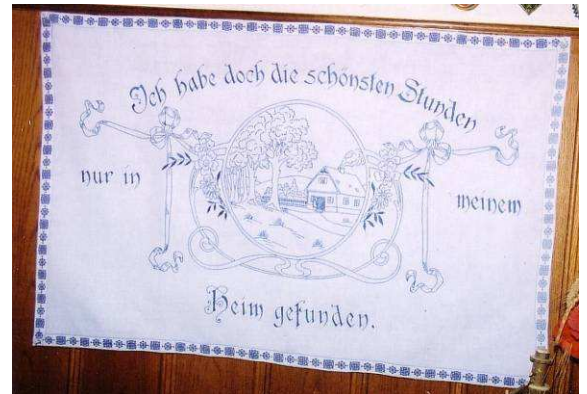 Ich habe doch die schönsten Stunden
nur in meinem
Heim gefunden.